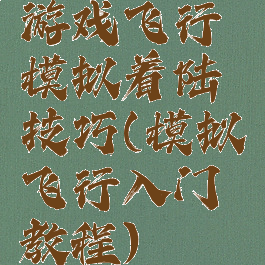 游戏飞行
模拟着陆
技巧(模拟
飞行入门
教程)